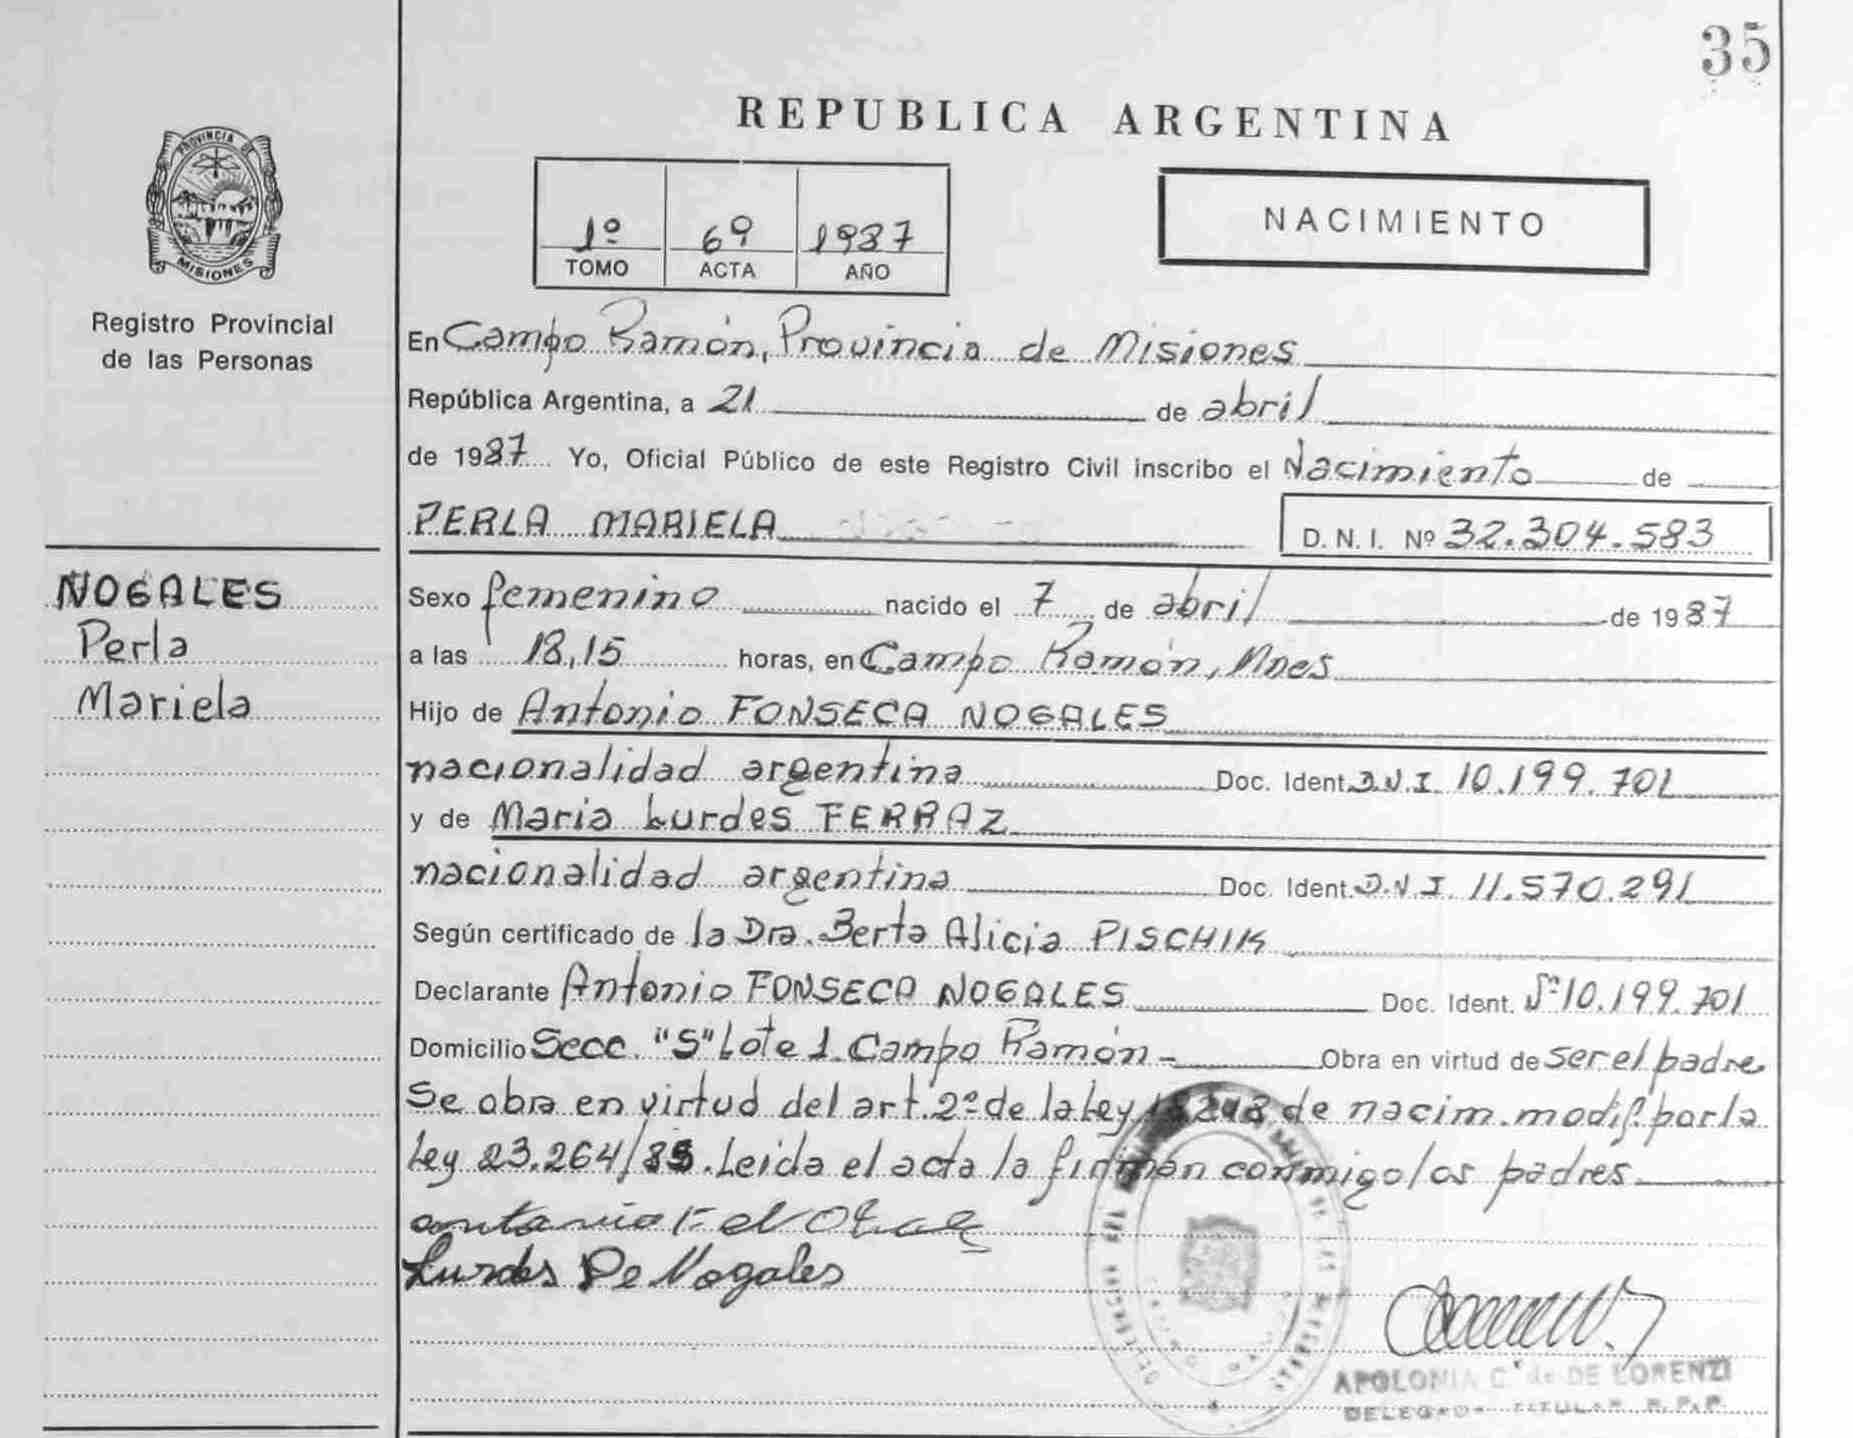 35
REPUBLICA ARGENTINA
PROVINCIA DE
MISIONES
Registro Provincial
de las Personas
1º 69 1987
TOMO ACTA AÑO
NACIMIENTO
En Campo Ramón, Provincia de Misiones
República Argentina, a 21 de abril
de 1987 Yo, Oficial Público de este Registro Civil inscribo el Nacimiento de
PERLA MARIELA D. N. I. Nº 32.304.583
NOGALES
Perla
Mariela
Sexo femenino nacido el 7 de abril de 1987
a las 18,15 horas, en Campo Ramón, Mnes
Hijo de Antonio FONSECA NOGALES
nacionalidad argentina Doc. Ident. D.N.I. 10.199.701
y de Maria Lurdes FERRAZ
nacionalidad argentina Doc. Ident. D.N.I. 11.570.291
Según certificado de la Dra. Berta Alicia PISCHIK
Declarante Antonio FONSECA NOGALES Doc. Ident. Nº 10.199.701
Domicilio Secc. "S" Lote 1 Campo Ramón - Obra en virtud de ser el padre
Se obra en virtud del art. 2º de la Ley de nacim. modif. por la
Ley 23.264/85. Leida el acta la firman conmigo los padres
Lurdes De Nogales
APOLONIA C. de DE LORENZI
DELEGADA TITULAR R.P.P.